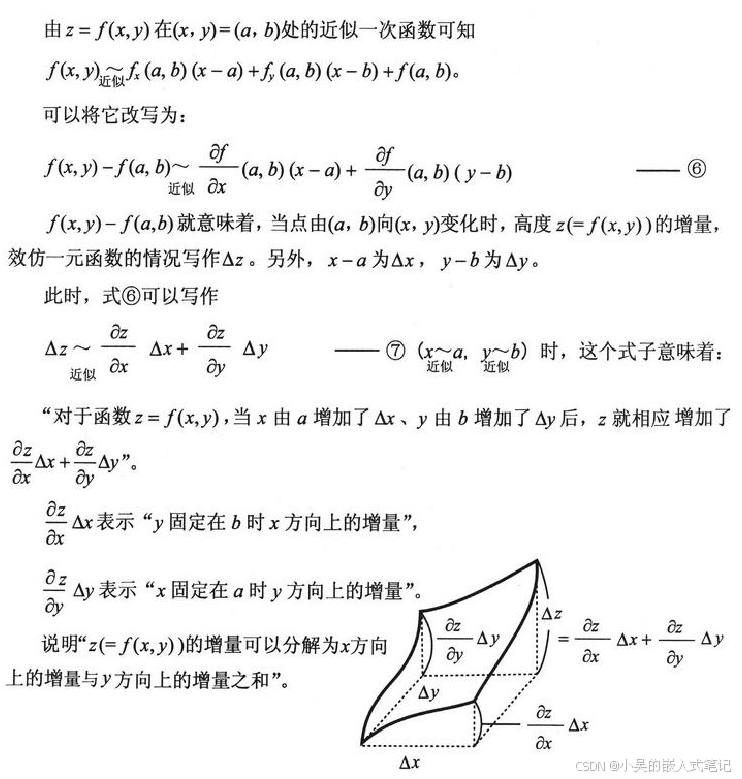 由 z = f(x,y) 在(x, y)=(a, b)处的近似一次函数可知
f(x,y) ~近似 fx(a, b)(x−a)+fy(a, b)(x−b)+f(a, b)。
可以将它改写为：
f(x,y)−f(a, b) ~近似 ∂f/∂x (a, b)(x−a)+ ∂f/∂y (a, b)(y−b) —— ⑥
f(x,y)−f(a,b)就意味着，当点由(a, b)向(x, y)变化时，高度 z(=f(x,y))的增量，
效仿一元函数的情况写作Δz。另外，x−a为Δx，y−b为Δy。
此时，式⑥可以写作
Δz ~近似 ∂z/∂x Δx+ ∂z/∂y Δy —— ⑦ (x~近似a, y~近似b) 时，这个式子意味着：
“对于函数 z = f(x,y),当 x 由 a 增加了 Δx、y 由 b 增加了 Δy 后，z 就相应增加了
∂z/∂x Δx+ ∂z/∂y Δy”。
∂z/∂x Δx表示“y固定在b时x方向上的增量”，
∂z/∂y Δy表示“x固定在a时y方向上的增量”。
说明“z(=f(x,y))的增量可以分解为x方向
上的增量与y方向上的增量之和”。
∂z/∂y Δy
Δz
= ∂z/∂x Δx+ ∂z/∂y Δy
Δy
∂z/∂x Δx
Δx
CSDN @小吴的嵌入式笔记